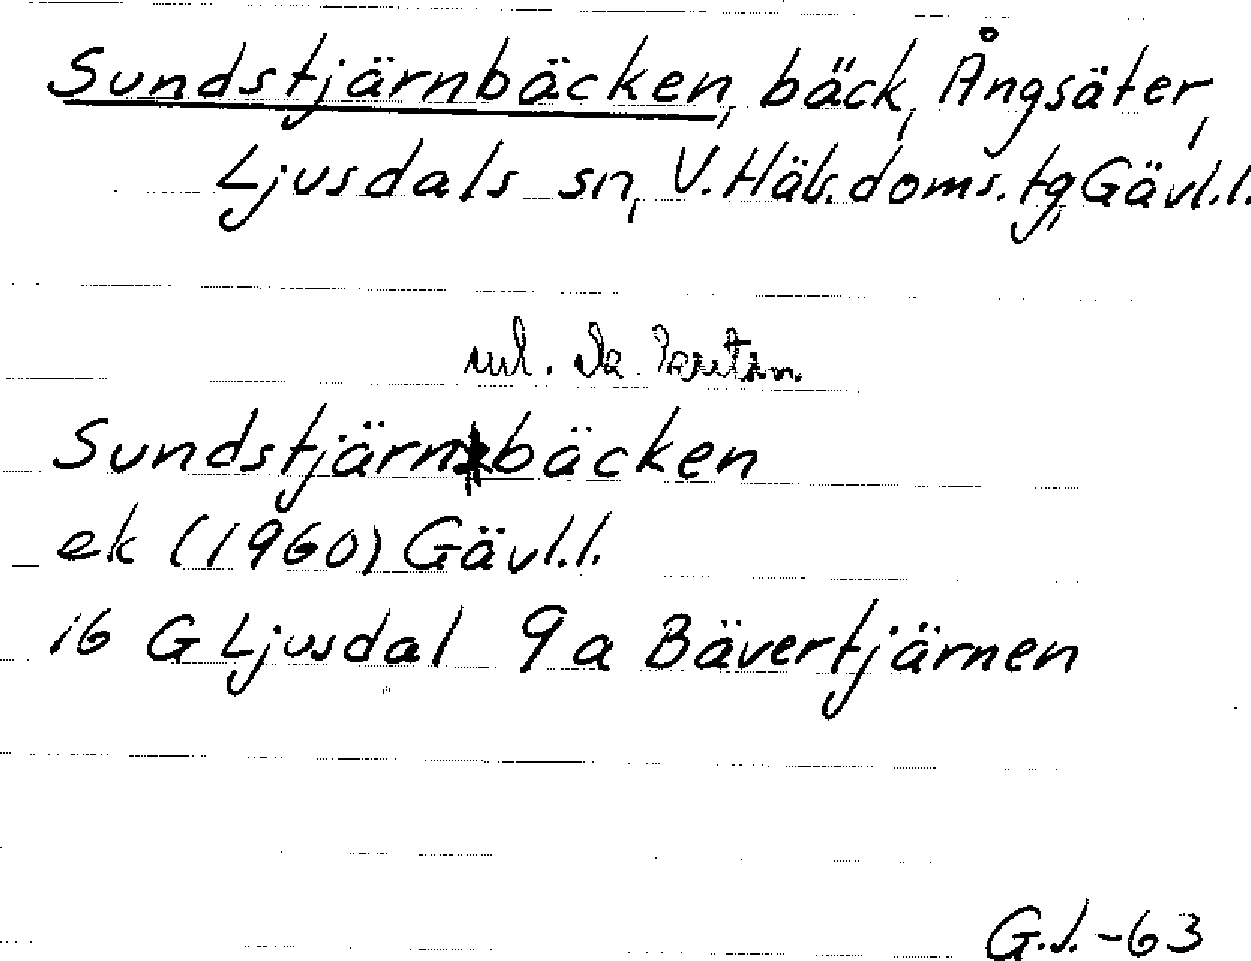 Sundstjärnbäcken, bäck, Ångsäter,
Ljusdals sn, V. Häls. doms. tg, Gävl. l.
Sundstjärnbäcken
ek (1960) Gävl. l.
16 G Ljusdal 9a Bävertjärnen
G.J.-63